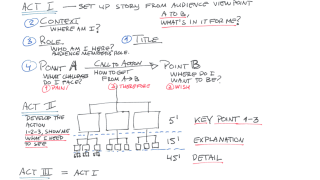 ACT I — SET UP STORY FROM AUDIENCE VIEWPOINT
A TO B,
WHAT'S IN IT FOR ME?
② CONTEXT
WHERE AM I?
③ ROLE.
WHO AM I HERE?
AUDIENCE MEMBERS ROLE.
① TITLE
④ POINT A — CALL TO ACTION → POINT B
WHAT CHALLENGE DO I FACE?
HOW TO GET FROM A→B
WHERE DO I WANT TO BE?
① PAIN!
③ THEREFORE
② WISH
ACT II
DEVELOP THE ACTION
1-2-3, SHOW ME
WHAT I NEED
TO SEE
5' KEY POINT 1-3
15' EXPLANATION
45' DETAIL
ACT III = ACT I